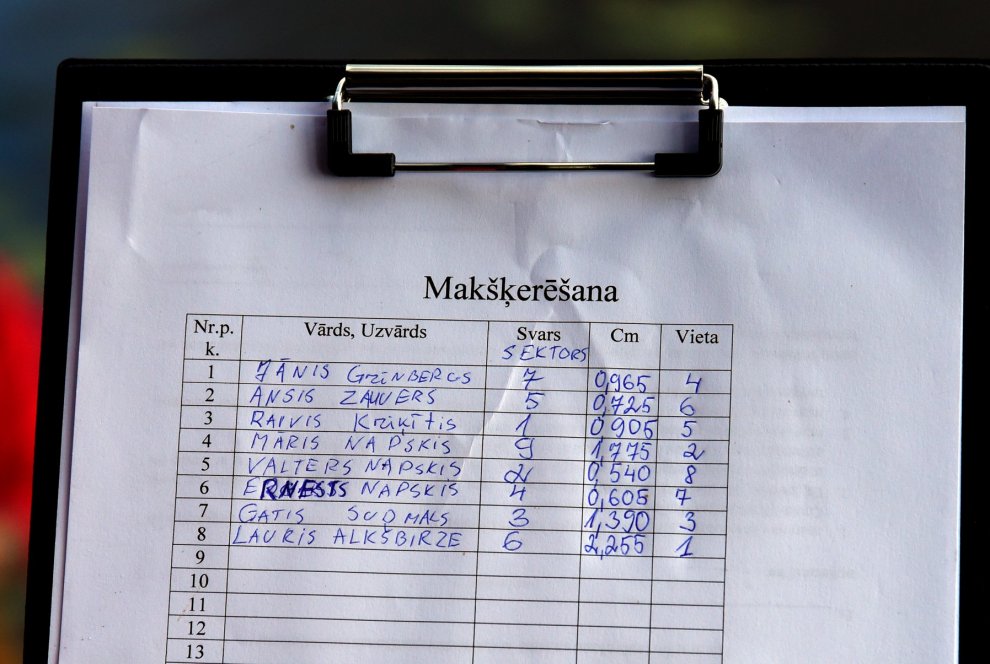 Makšķerēšana
Nr.p.k. Vārds, Uzvārds Svars SEKTORS Cm Vieta
1 JĀNIS GrīNBERGS 7 0,965 4
2 ANSIS ZAUVERS 5 0,725 6
3 RAIVIS KriķĪTIS 1 0,905 5
4 MARIS NAPSKIS 9 1,775 2
5 VALTERS NAPSKIS 2 0,540 8
6 ERNESTS NAPSKIS 4 0,605 7
7 GATIS SUDMALS 3 1,390 3
8 LAURIS ALKŠBIRZE 6 2,255 1
9
10
11
12
13